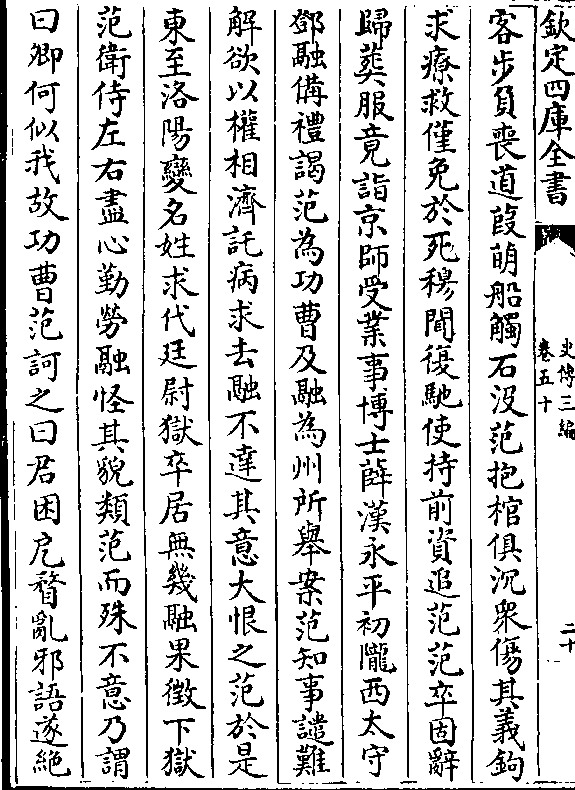 欽定四庫全書
史傳三編
卷五十
二十
客步負喪道葭萌船觸石没范抱棺俱沉衆傷其義鉤
求療救僅免於死穆聞復馳使持前資追范范卒固辭
歸葬服竟詣京師受業事博士薛漢永平初隴西太守
鄧融備禮謁范為功曹及融為州所舉案范知事譴難
解欲以權相濟託病求去融不達其意大恨之范於是
東至洛陽變名姓求代廷尉獄卒居無幾融果徴下獄
范衛侍左右盡心勤勞融怪其貌類范而殊不意乃謂
曰卿何似我故功曹范訶之曰君困戹瞀亂邪語遂絶